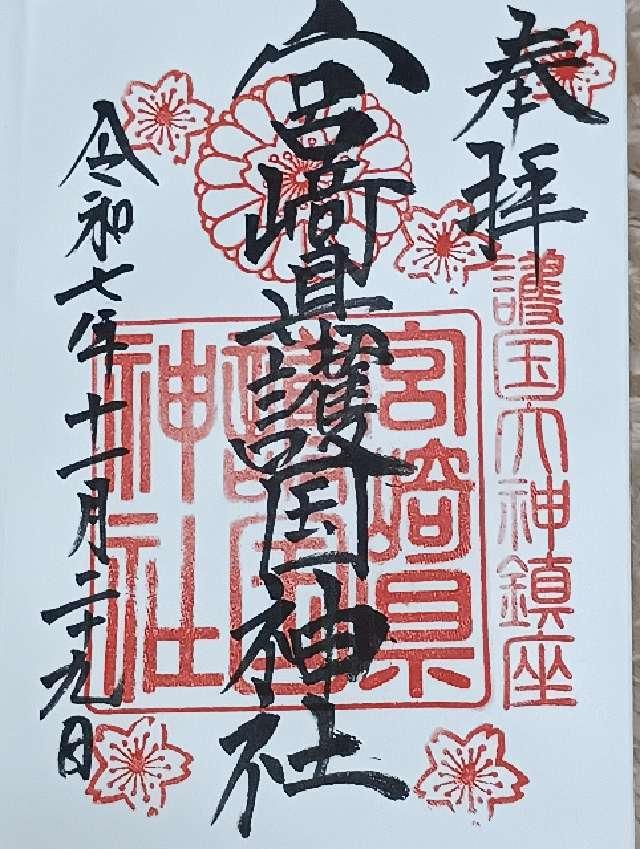 奉拝
護国大神鎮座
宮崎県
護国
神社
宮﨑县護国神社
令和七年十一月二十九日